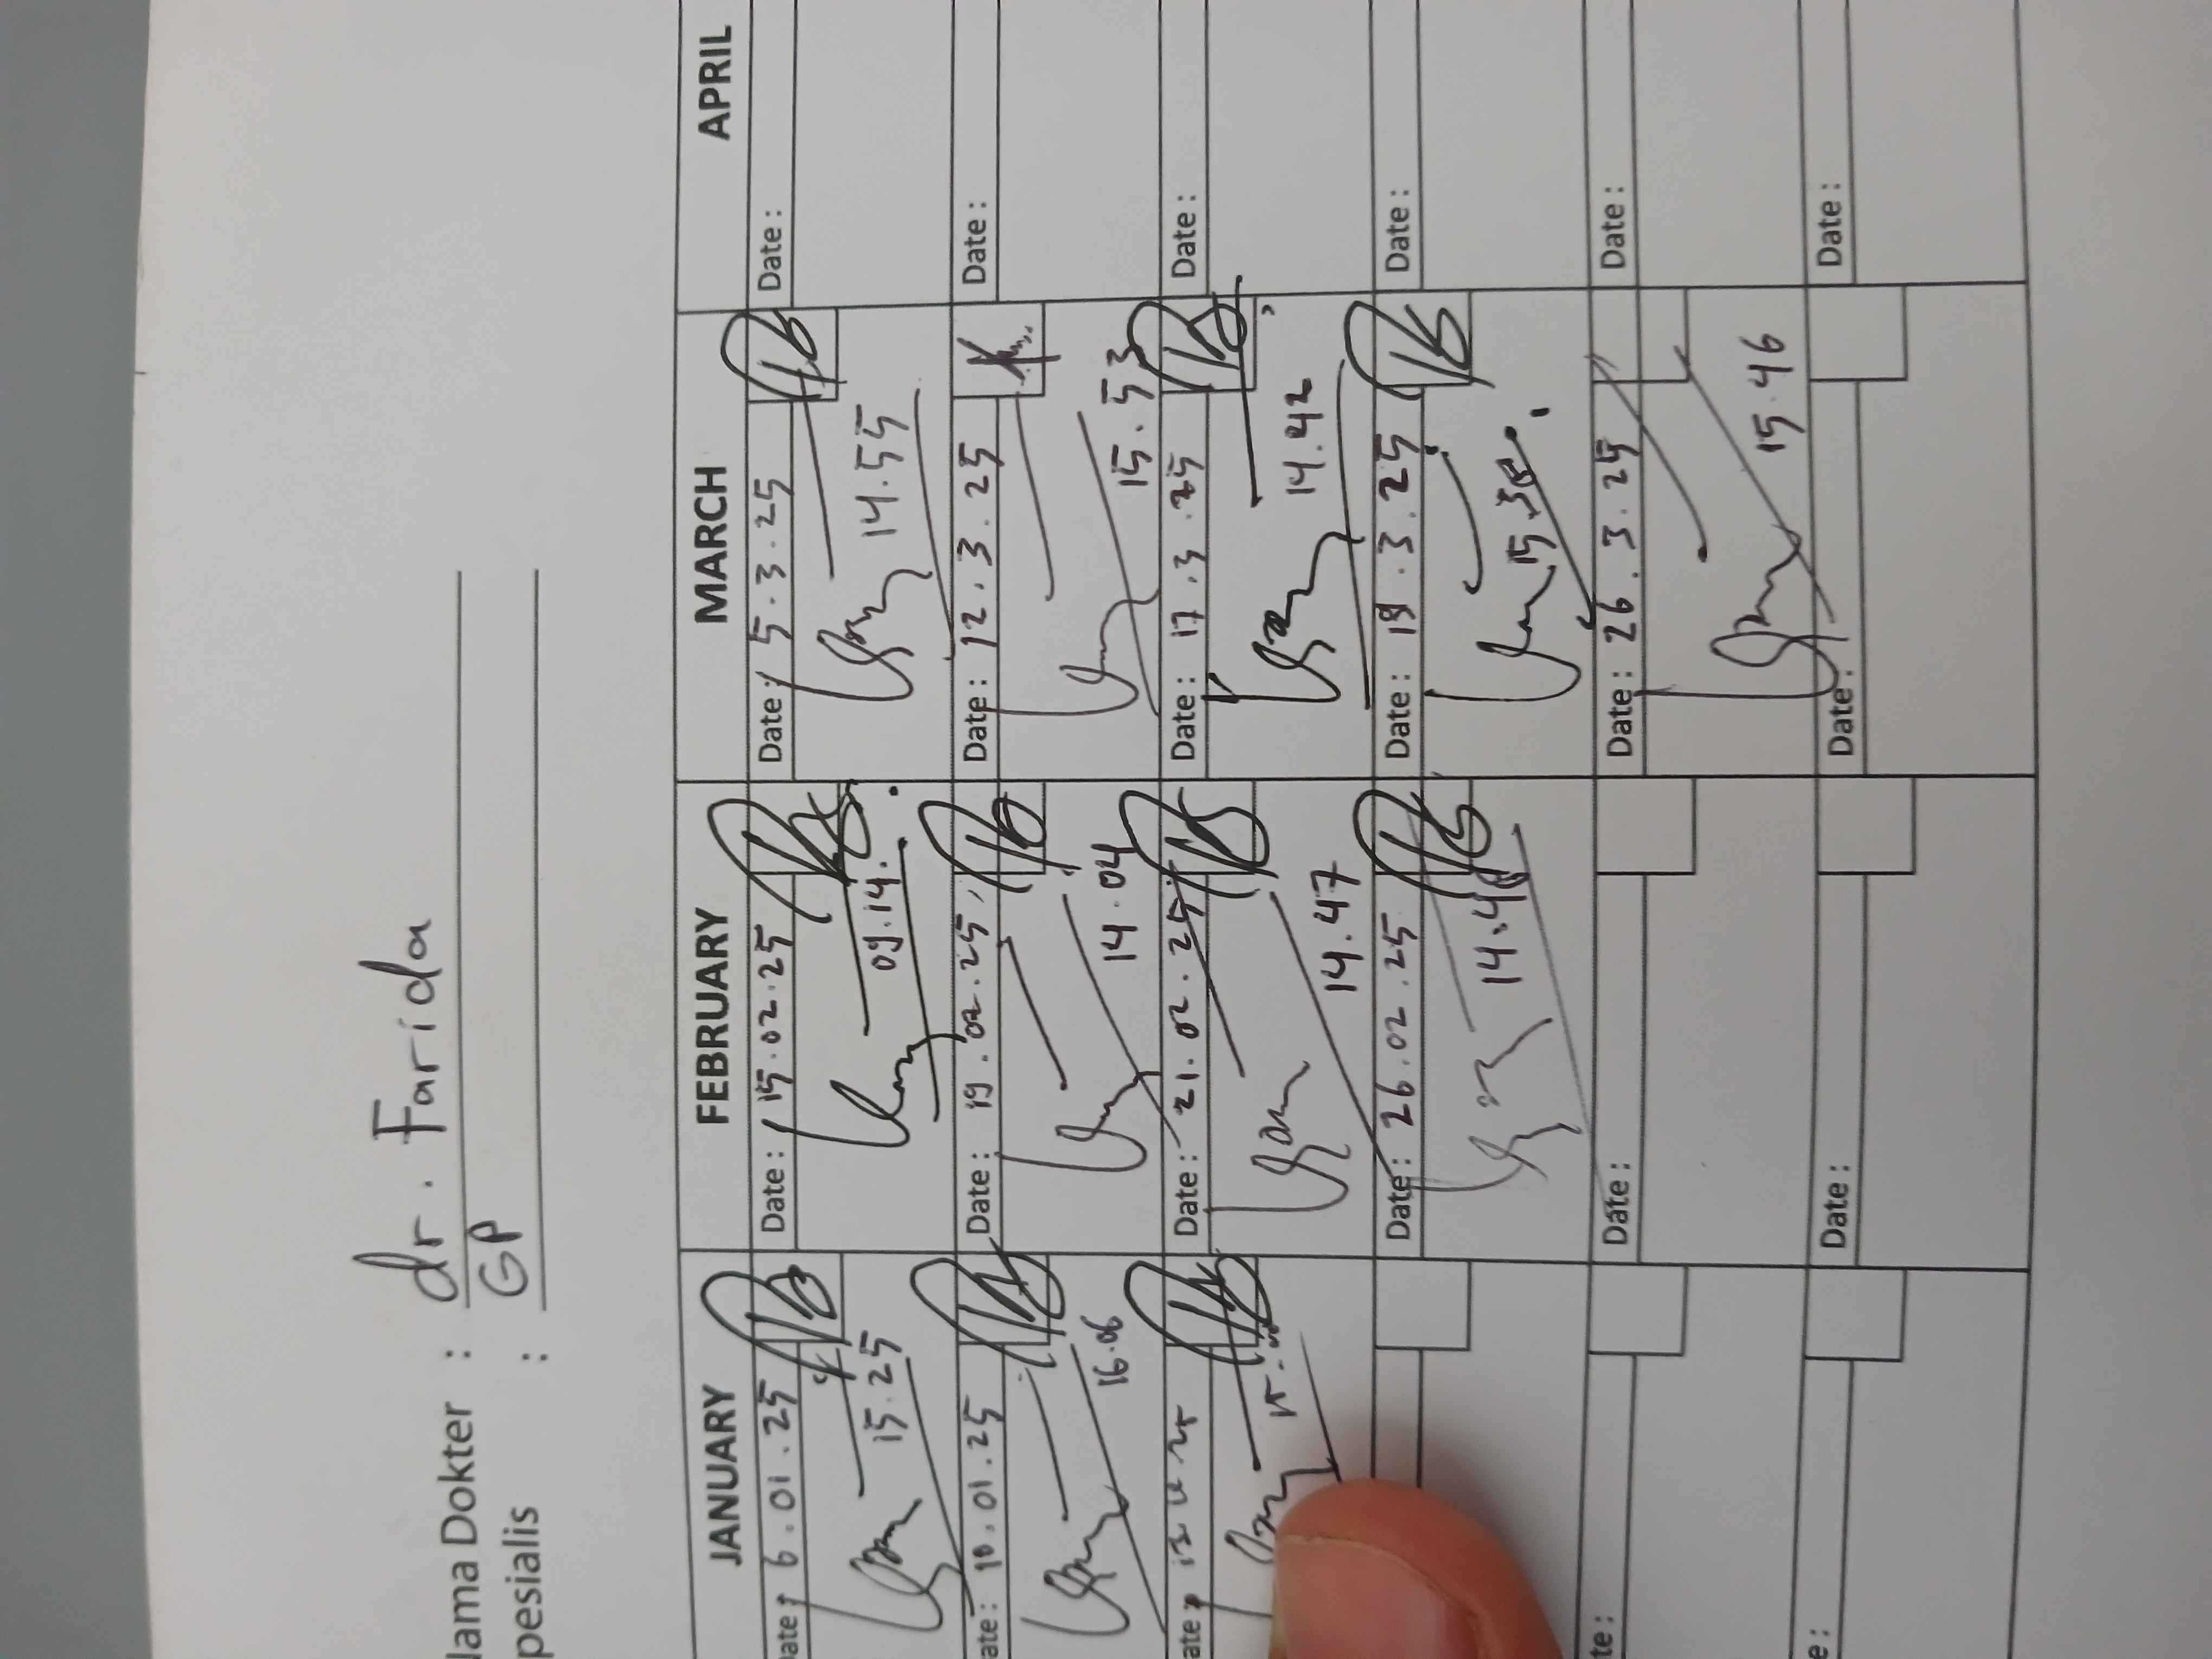 lama Dokter : dr. Farida
pesialis : GP
JANUARY FEBRUARY MARCH APRIL
ate: 6.01.25 Date: 15.02.25 Date: 5.3.25 Date:
15.25 09.14. 14.55
ate: 10.01.25 Date: 19.02.25 Date: 12.3.25 Date:
16.06 14.04 15.53
ate: Date: 21.02.25 Date: 17.3.25 Date:
14.47 14.42
Date: 26.02.25 Date: 19.3.25 Date:
te: Date: Date: 26.3.25 Date:
15.46
e: Date: Date: Date: